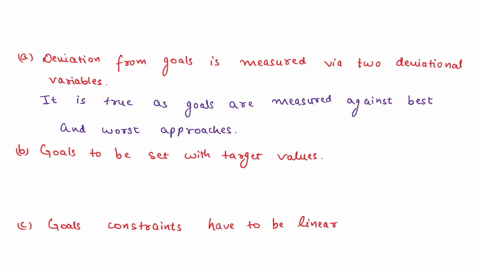 (a) Deviation from goals is measured via two deviational
variables.
It is true as goals are measured against best
And worst approaches.
(b) Goals to be set with target values.
(c) Goals constraints have to be linear